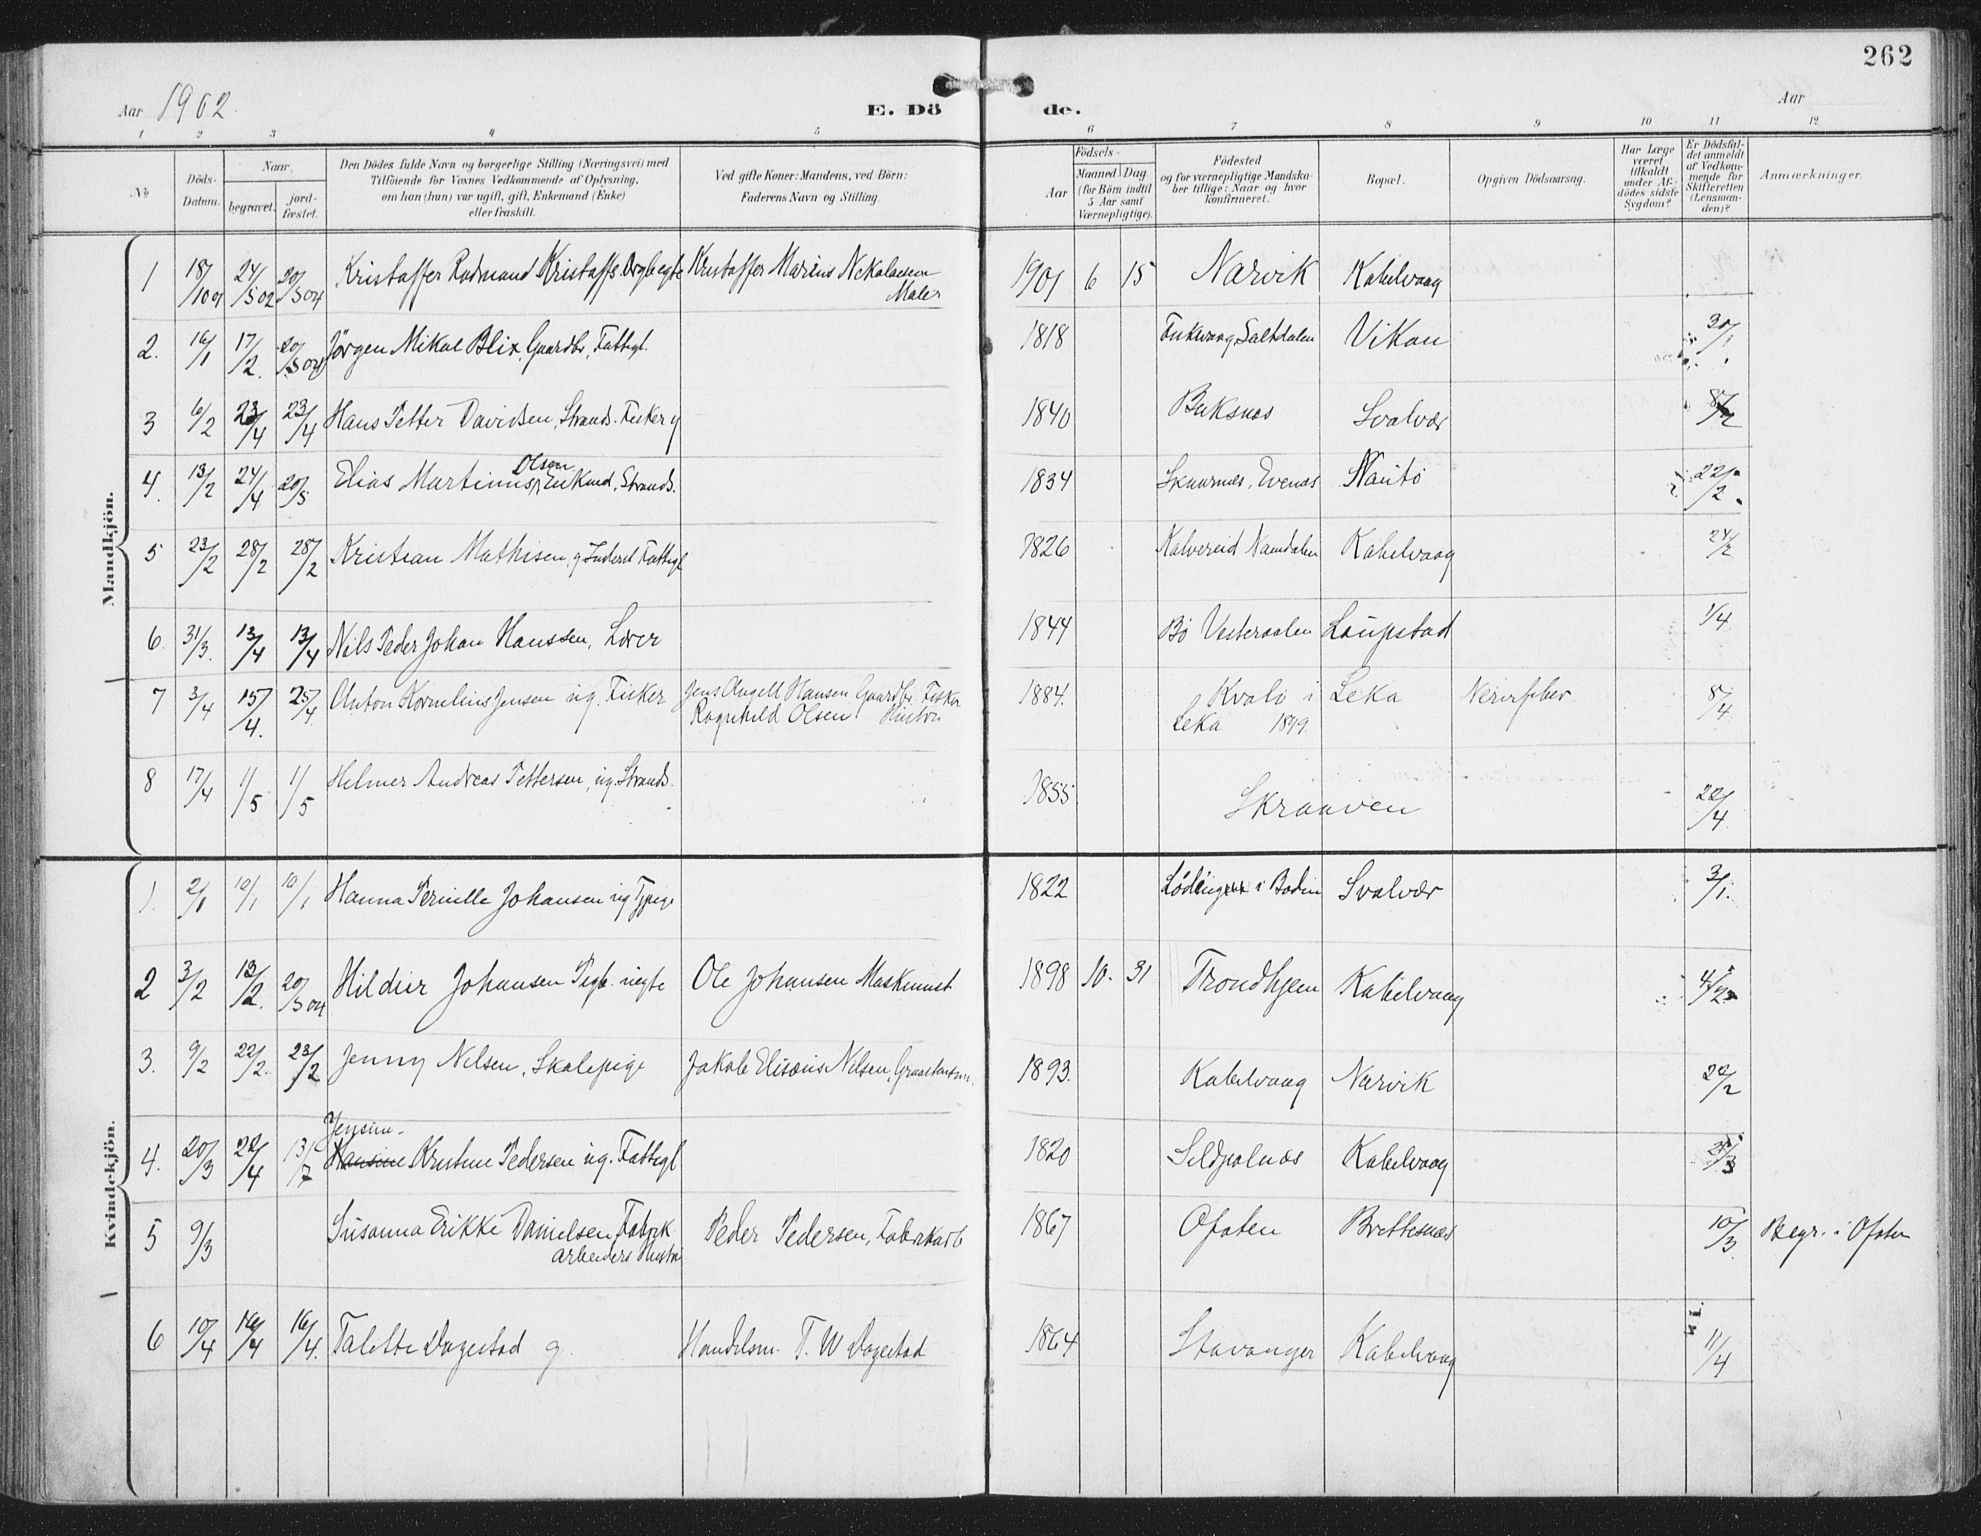 262
Aar 1902.
E. Dö de.
Aar
1 2 3 4 5 6 7 8 9 10 11 12
No
Döds-Datum.
Naar
begravet.
jord-fæstet.
Den Dödes fulde Navn og borgerlige Stilling (Næringsvei) med
Tilföiende for Voxnes Vedkommende af Oplysning,
om han (hun) var ugift, gift, Enkemand (Enke)
eller fraskilt.
Ved gifte Koner: Mandens, ved Börn:
Faderens Navn og Stilling.
Födsels-
Aar
Maaned Dag
(for Börn indtil
5 Aar samt
Værnepligtige).
Födested
og for værnepligtige Mandska-
ber tillige: Naar og hvor
konfirmeret.
Bopæl.
Opgiven Dödsaarsag.
Har Læge
været
tilkaldt
under Af-
dödes sidste
Sygdom?
Er Dödsfal-
det anmeldt
af Vedkom-
mende for
Skifteretten
(Lensman-
den)?
Anmærkninger.
Mandkjön.
1 18/10 01 24/3 02 20/3 04 Kristoffer Kristoffer Marius Nikolaisen Maler 1901 6 15 Narvik Kabelvaag
2. 16/1 17/2. 20/3 04 Jörgen Mikal Blix, Gaardbr, Fattigl. 1818 Saltdalen Vikan 30/1
3 6/2 23/4 23/4 Hans Petter Davidsen, Strands. Fisker g 1840 Buksnæs Svolvær 8/2
4. 13/2 24/4 20/5 Elias Martinus Olsen, Enkmd, Strands. 1834 Skaarnæs, Evenæs Nautö 22/2
5 23/2 28/2 28/2 Kristian Mathisen, g Inderst Fattigl 1826 Kalvereid Namdalen Kabelvaag 24/2
6 31/3. 13/4 13/4 Nils Peder Johan Hanssen, Lærer 1844 Bö Vesteraalen Laupstad 1/4
7 3/4 15/4. 25/4 Anton Kornelius Jensen ug. Fisker Jens Angell Hansen Gaardbr. Fisker
Ragnhild Olsen Hustru 1884. Kvalö i Leka 1899. Leka Nervefeber. 8/4
8 17/4 1/5 1/5 Helmer Andreas Pettersen, ug. Strands. 1855 Skraaven 22/4
Kvindekjön.
1. 2/1 10/1 10/1 Hanna Pernille Johansen ug Tjpige 1822 i Bodin Svolvær 3/1.
2 3/2 13/2. 20/3 04 Johansen Pigb. uegte Ole Johansen Maskinist 1898 10. 31 Trondhjem Kabelvaag 4/2
3. 9/2 22/2. 23/2 Jenny Nilsen, Skolepige Jakob Elisæus Nilsen, 1893. Kabelvaag Narvik 20/2
4. 20/3 22/4 13/7 Jensine Hansine Kristine Pedersen ug. Fattigl 1820 Kabelvaag
5 9/3 Susanna Erikke Danielsen, Fabrik
arbeiders Hustru Peder Pedersen, Fabrikarb 1867 Ofoten Brettesnæs 10/3. Begr. i Ofoten
6 10/4 16/4 16/4. Talette Dagestad g. Handelsm. T. W Dagestad 1864 Stavanger Kabelvaag 11/4